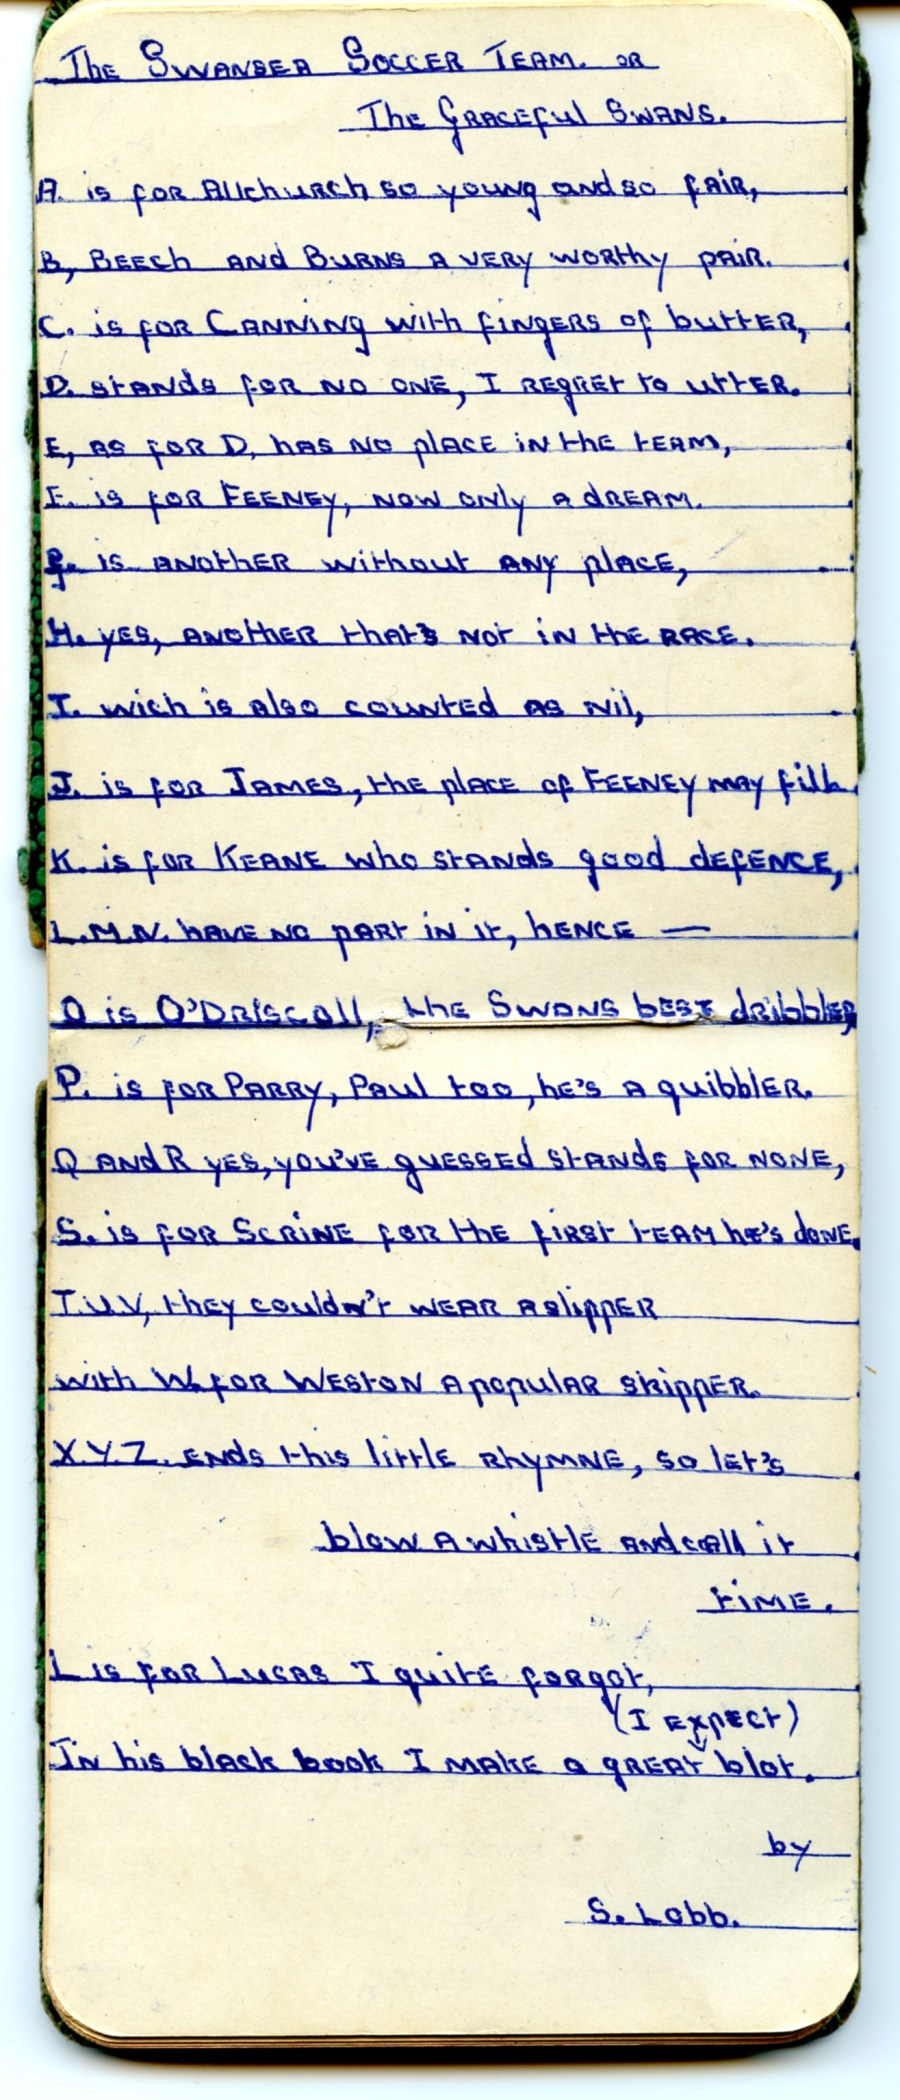 The Swansea Soccer Team. or
The Graceful Swans.
A. is for Allchurch so young and so fair,
B, Beech and Burns a very worthy pair.
C. is for Canning with fingers of butter,
D. stands for no one, I regret to utter.
E, as for D, has no place in the team,
F. is for Feeney, now only a dream.
G. is another without any place,
H. yes, another that's not in the race.
I. wich is also counted as nil,
J. is for James, the place of Feeney may fill.
K. is for Keane who stands good defence,
L.M.N. have no part in it, hence —
O is O'Driscoll, the Swans best dribbler,
P. is for Parry, Paul too, he's a quibbler.
Q and R yes, you've guessed stands for none,
S. is for Scrine for the first team he's done.
T.U.V, they couldn't wear a slipper
with W. for Weston a popular skipper.
X.Y.Z. ends this little rhymne, so let's
blow a whistle and call it
time.
L is for Lucas I quite forgot,
(I expect)
In his black book I make a great blot.
by
S. Lobb.